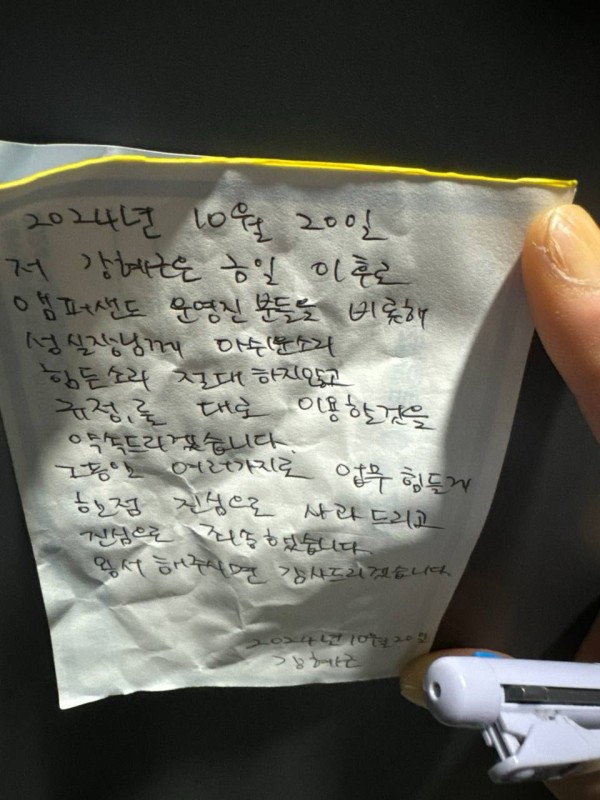 2024년 10월 20일
저 강혜근은 금일 이후로
앰퍼샌드 운영진 분들을 비롯해
성실장님께 아쉬운소리
힘든소리 절대 하지않고
규정,룰 대로 이용할것을
약속드리겠습니다.
그동안 여러가지로 업무 힘들게
한점 진심으로 사과 드리고
진심으로 죄송했습니다.
용서 해주시면 감사드리겠습니다.
2024년 10월 20일
강혜근